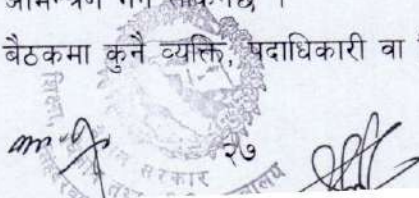 आमन्त्रण गर्न सकिनेछ ।
बैठकमा कुनै व्यक्ति, पदाधिकारी वा
२७
सरकार